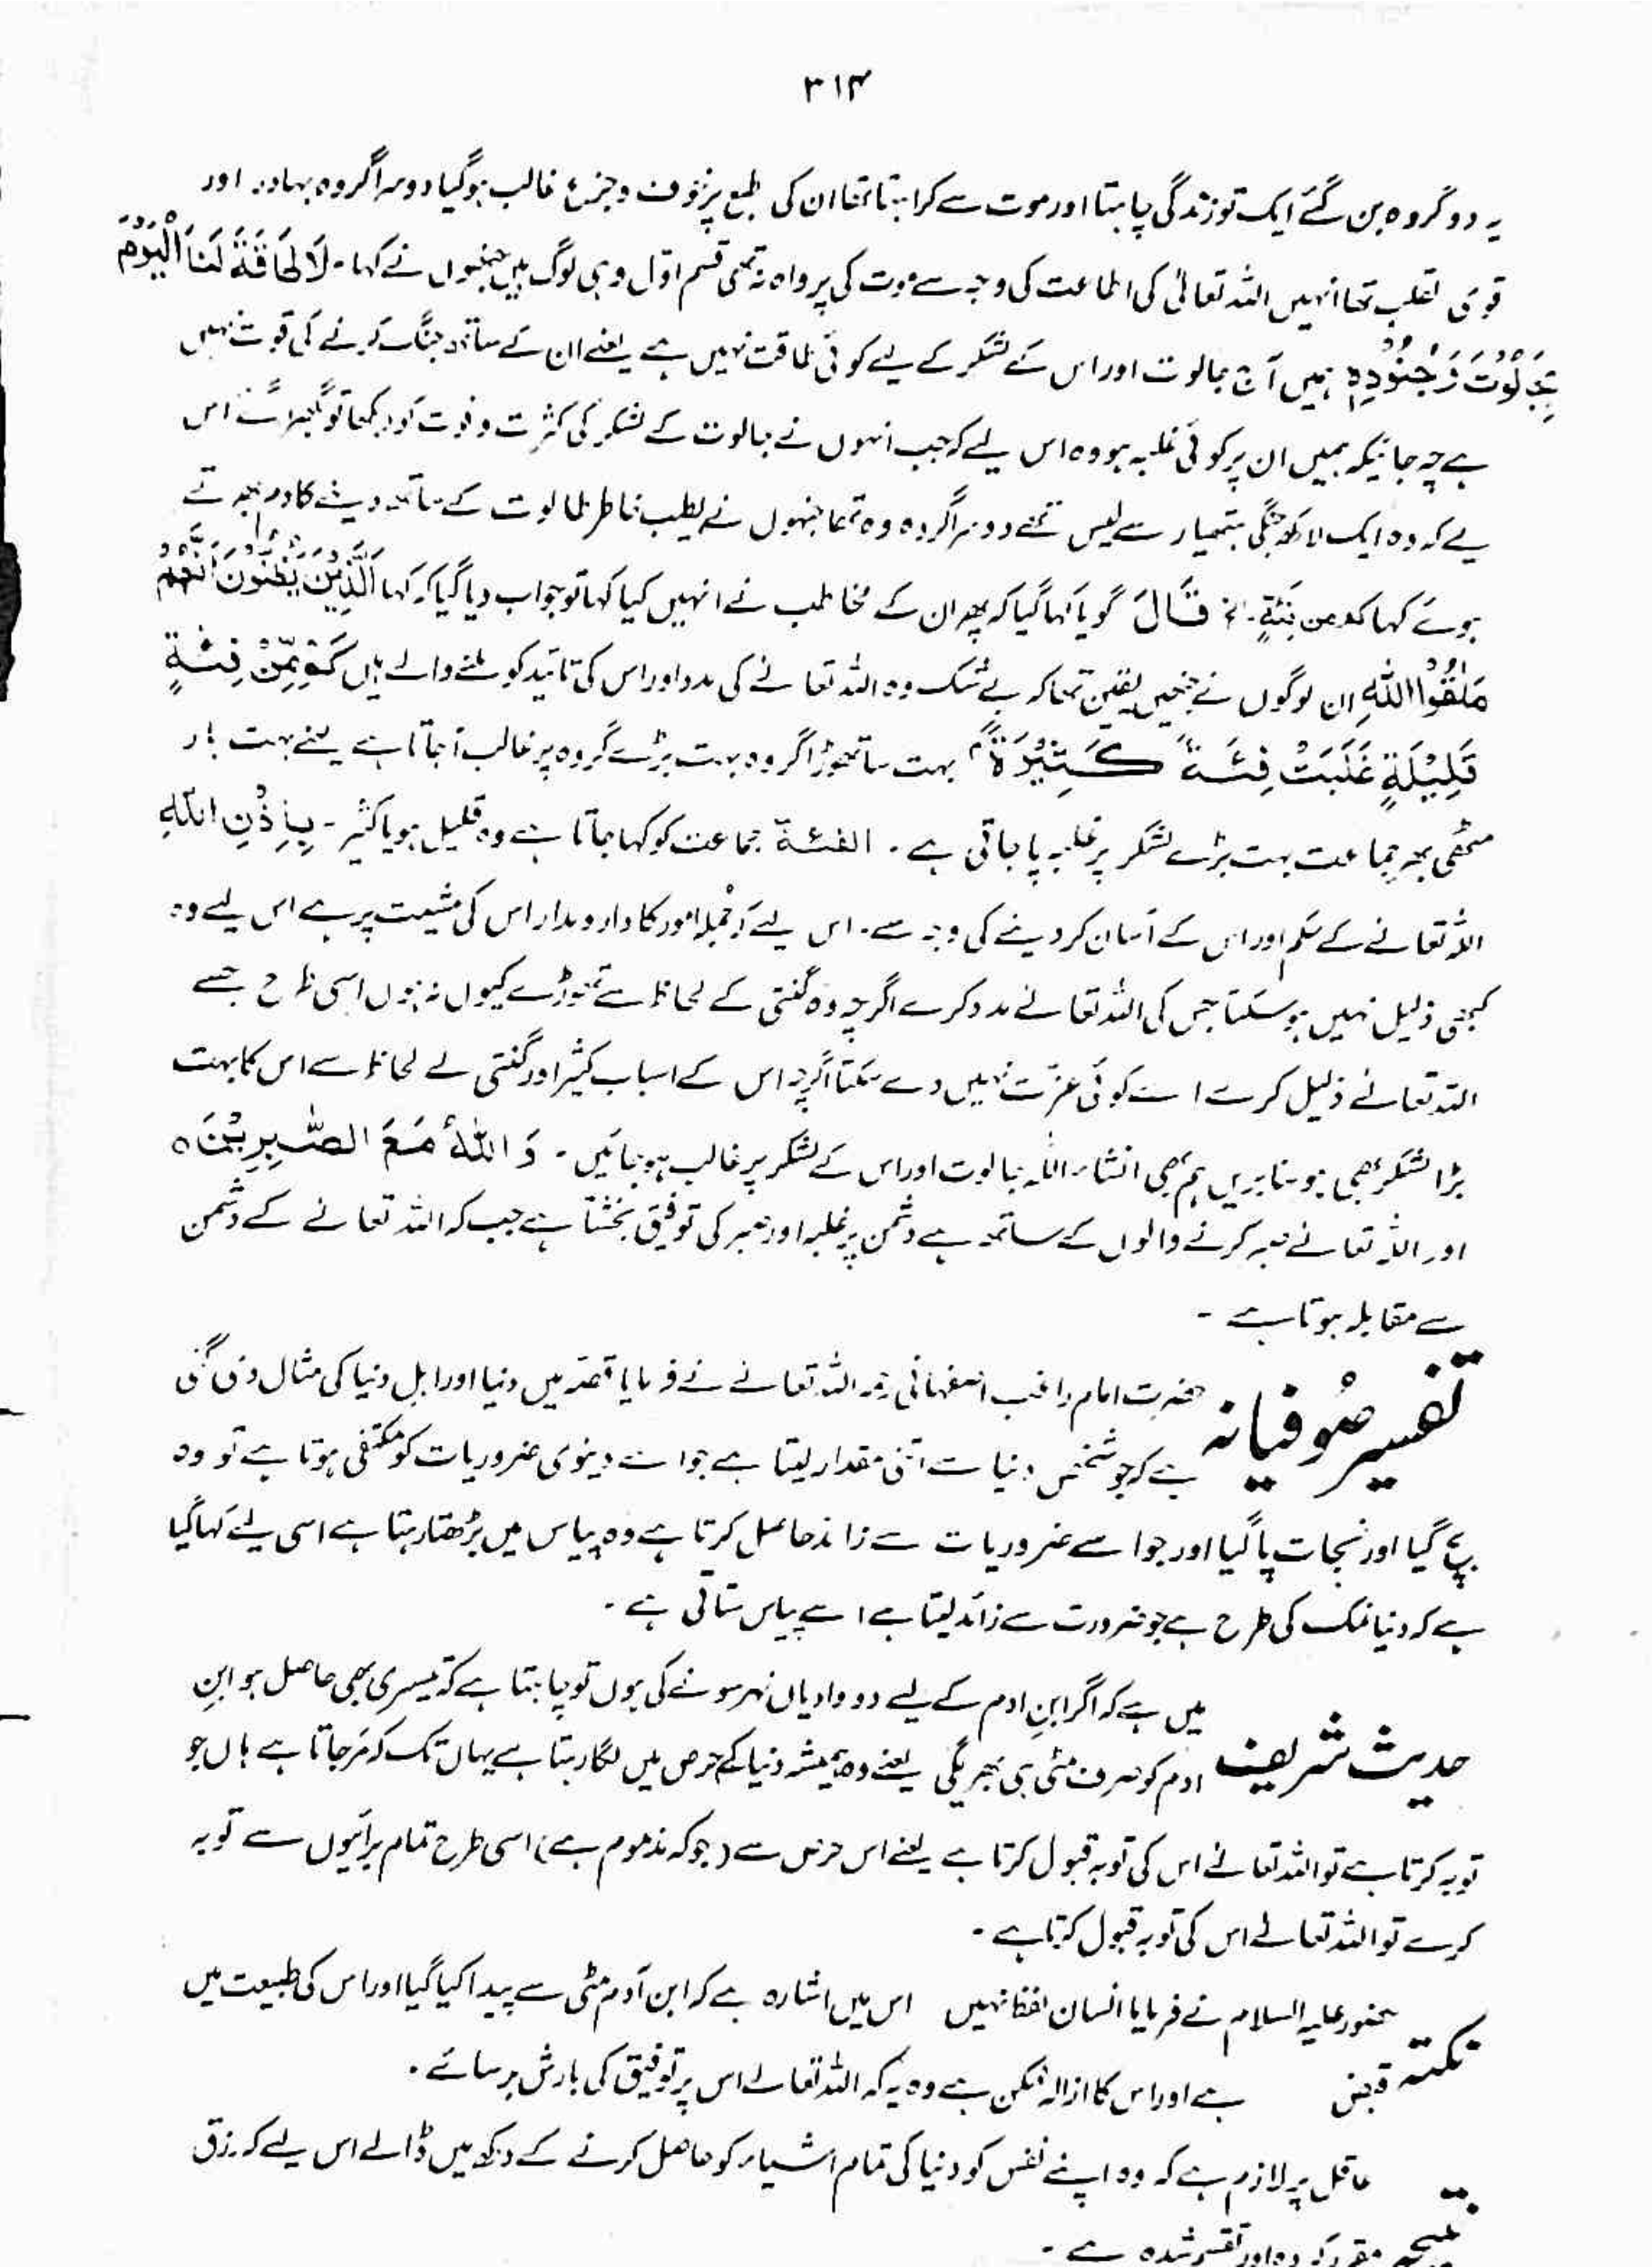 ۳۱۴
یہ دو گروہ بن گئے ایک تو زندگی چاہتا اور موت سے کراہتا تھا ان کی طبع پر خوف و جزع غالب ہو گیا دوسرا گروہ بہادر اور
قوی القلب تھا انہیں اللہ تعالیٰ کی اطاعت کی وجہ سے موت کی پرواہ نہ تھی قسم اوّل وہی لوگ ہیں جنہوں نے کہا۔ لَا طَاقَةَ لَنَا الْيَوْمَ
بِجَالُوْتَ وَجُنُوْدِهٖ ہمیں آج جالوت اور اس کے لشکر کے لیے کوئی طاقت نہیں ہے یعنے ان کے ساتھ جنگ کرنے کی قوت نہیں
ہے چہ جائیکہ ہمیں ان پر کوئی غلبہ ہو وہ اس لیے کہ جب انہوں نے جالوت کے لشکر کی کثرت و قوت کو دیکھا تو گھبرا گئے اس
لیے کہ وہ ایک لاکھ جنگی ہتھیار سے لیس تھے دوسرا گروہ وہ تھا جنہوں نے بطیب خاطر طالوت کے ساتھ دینے کا دم بھرتے
ہوئے کہا کم من فئۃٍ۔ الخ قَالَ گویا کہا گیا کہ پھر ان کے مخاطب نے انہیں کیا کہا تو جواب دیا گیا کہ کہا الَّذِيْنَ يَظُنُّوْنَ اَنَّهُمْ
مُّلٰقُوا اللّٰهِ ان لوگوں نے جنہیں یقین تھا کہ بے شک وہ اللہ تعالےٰ کی مدد اور اس کی تائید کو ملنے والے ہیں كَمْ مِّنْ فِئَةٍ
قَلِيْلَةٍ غَلَبَتْ فِئَةً كَثِيْرَةً بہت سا تھوڑا گروہ بہت بڑے گروہ پر غالب آجاتا ہے یعنے بہت بار
مٹھی بھر جماعت بہت بڑے لشکر پر غلبہ پا جاتی ہے۔ الفئۃ جماعت کو کہا جاتا ہے وہ قلیل ہو یا کثیر۔ بِاِذْنِ اللّٰهِ
اللہ تعالےٰ کے حکم اور اس کے آسان کر دینے کی وجہ سے۔ اس لیے کہ جملہ امور کا دار و مدار اس کی مشیت پر ہے اس لیے وہ
کبھی ذلیل نہیں ہو سکتا جس کی اللہ تعالےٰ مدد کرے اگرچہ وہ گنتی کے لحاظ سے تھوڑے کیوں نہ ہوں اسی طرح جسے
اللہ تعالےٰ ذلیل کرے اسے کوئی عزت نہیں دے سکتا اگرچہ اس کے اسباب کثیر اور گنتی کے لحاظ سے اس کا بہت
بڑا لشکر بھی ہو بنا بریں ہم بھی انشاء اللہ جالوت اور اس کے لشکر پر غالب ہو جائیں۔ وَاللّٰهُ مَعَ الصّٰبِرِيْنَ ہ
اور اللہ تعالےٰ صبر کرنے والوں کے ساتھ ہے دشمن پر غلبہ اور صبر کی توفیق بخشتا ہے جب کہ اللہ تعالےٰ کے دشمن
سے مقابلہ ہوتا ہے۔
تفسیر صوفیانہ حضرت امام راغب اصفہانی رحمہ اللہ تعالےٰ نے فرمایا قصہ میں دنیا اور اہل دنیا کی مثال دی گئی
ہے کہ جو شخص دنیا سے اتنی مقدار لیتا ہے جو اسے دینوی ضروریات کو مکتفی ہوتا ہے تو وہ
بچ گیا اور نجات پا گیا اور جو اسے ضروریات سے زائد حاصل کرتا ہے وہ پیاس میں بڑھتا رہتا ہے اسی لیے کہا گیا
ہے کہ دنیا نمک کی طرح ہے جو ضرورت سے زائد لیتا ہے اسے پیاس ستاتی ہے۔
حدیث شریف میں ہے کہ اگر ابنِ ادم کے لیے دو وادیاں نہر سونے کی ہوں تو چاہتا ہے کہ تیسری بھی حاصل ہو ابنِ
ادم کو صرف مٹی ہی بھریگی یعنے وہ ہمیشہ دنیا کے حرص میں لگا رہتا ہے یہاں تک کہ مر جاتا ہے ہاں جو
توبہ کرتا ہے تو اللہ تعالےٰ اس کی توبہ قبول کرتا ہے یعنے اس حرص سے (جو کہ مذموم ہے) اسی طرح تمام برائیوں سے توبہ
کرے تو اللہ تعالےٰ اس کی توبہ قبول کرتا ہے۔
نکتہ حضور علیہ السلام نے فرمایا انسان لفظا نہیں اس میں اشارہ ہے کہ ابن آدم مٹی سے پیدا کیا گیا اور اس کی طبیعت میں
قبض ہے اور اس کا ازالہ ممکن ہے وہ یہ کہ اللہ تعالےٰ اس پر توفیق کی بارش برسائے۔
عاقل پر لازم ہے کہ وہ اپنے نفس کو دنیا کی تمام اشیاء کو حاصل کرنے کے دکھ میں ڈالے اس لیے کہ رزق
مقرر کردہ اور تقسیم شدہ ہے۔